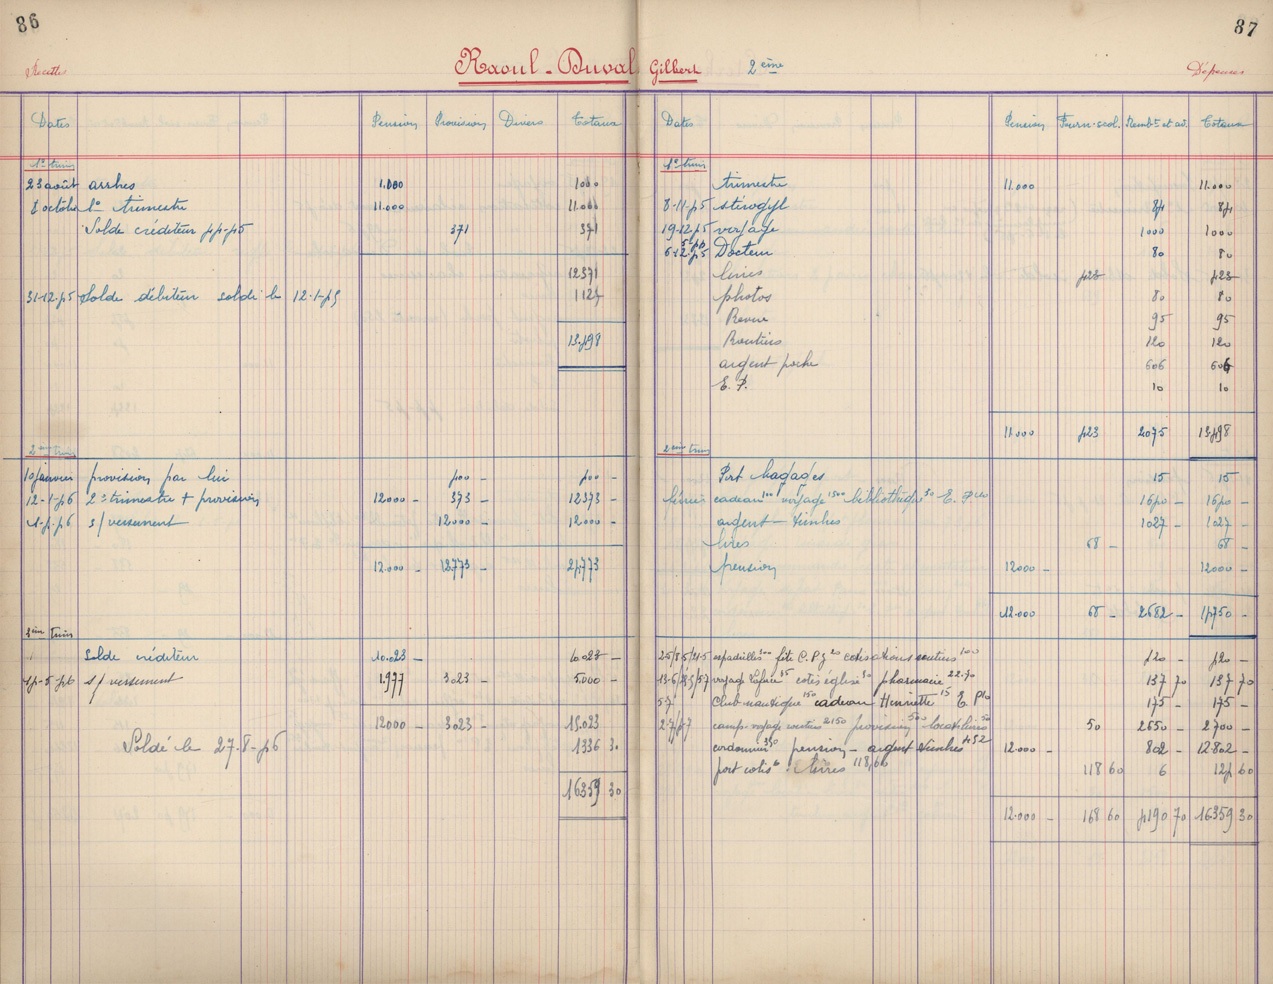 86
87
Recettes
Raoul-Duval Gilbert 2ème
Dépenses
Dates Pension Provision Divers Totaux
1er trim
23 août arrhes 1.000 1000
4 octobre 1er trimestre 11.000 11.000
Solde créditeur 44-45 371 371
12371
31-12-45 Solde débiteur soldé le 12-1-45 1127
13498
2ème trim
10 janvier provision par lui 400 - 400 -
12-1-46 2e trimestre + provision 12000 - 373 - 12373 -
4-4-46 s/ versement 12000 - 12000 -
12.000 - 12773 - 24773
3ème trim
Solde créditeur 10.023 - 10.023 -
s/ versement 1.977 3023 - 5.000 -
12000 - 3023 - 15.023
Soldé le 27-8-46 1336 30
16359 30
Dates Pension Fourn. scol. Rembts et av. Totaux
1er trim
trimestre 11.000 11.000
8-11-45 sterogyl 84 84
19-12-45 voyage 1000 1000
Docteur 80 80
livres 423 423
photos 80 80
Revue 95 95
Routiers 120 120
argent poche 606 606
E. P. 10 10
11.000 423 2075 13498
2ème trim
Port bagages 15 15 -
cadeau 100 voyage 1500 bibliothèque 30 E. P. 1640 - 1640 -
argent - timbres 1027 - 1027 -
livres 68 - 68 -
pension 12000 - 12000 -
12.000 68 - 2682 - 14750 -
espadrilles fête C.P. 20 cotisations routiers 100 420 - 420 -
voyage 35 cotis église pharmacie 22.70 137 70 137 70
Club nautique 150 cadeau Henriette 15 E. P. 10 175 - 175 -
camp-voyage routiers 2150 provision 500 50 2650 - 2700 -
cordonnier 350 pension - argent timbres 452 12.000 - 802 - 12802 -
port cotis 6 livres 118,60 118 60 6 124 60
12.000 - 168 60 4190 70 16359 30